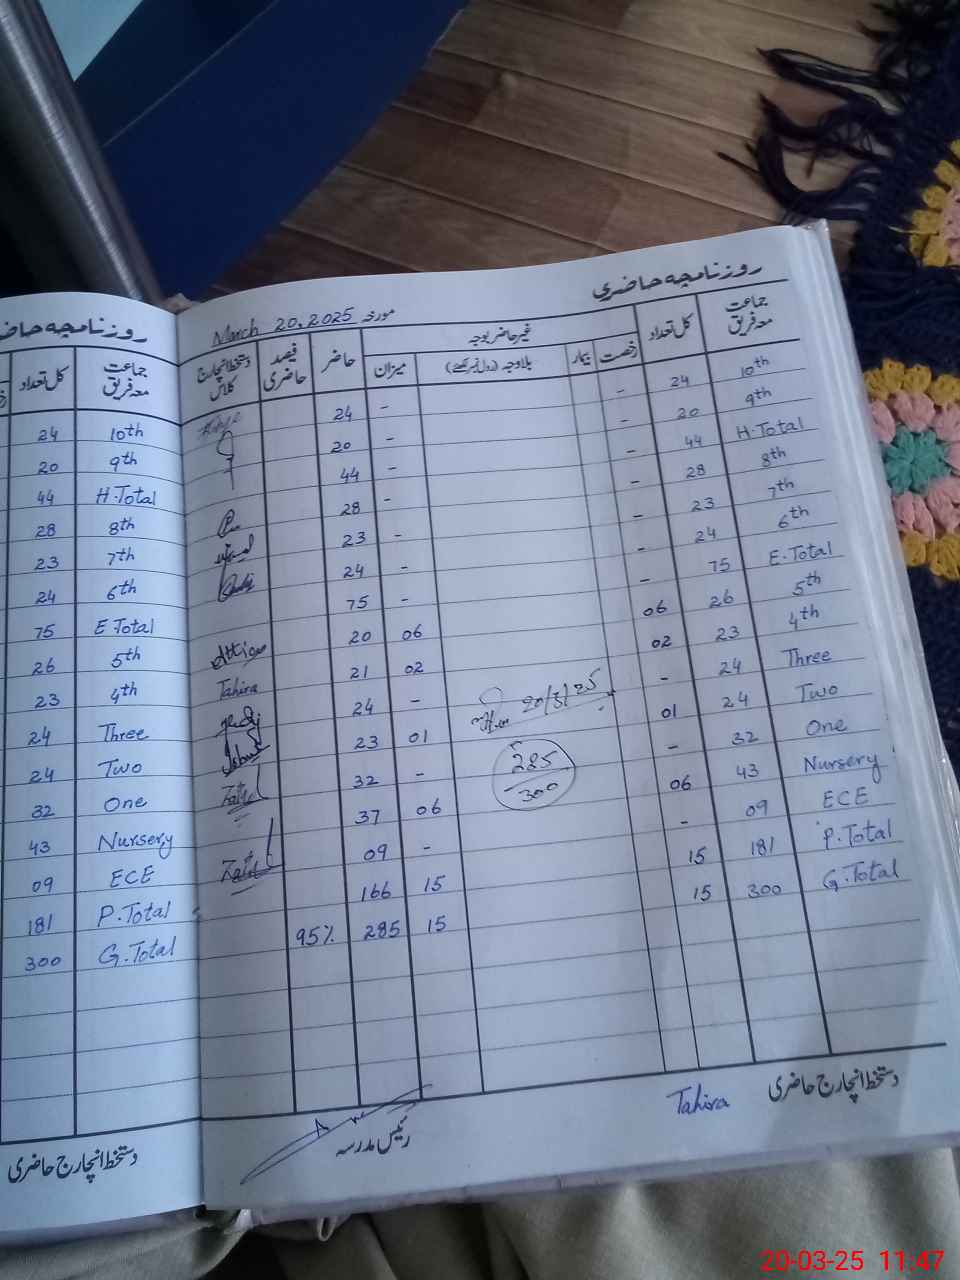 روزنامچہ حاضری
کل تعداد جماعت معہ فریق
24 10th
20 9th
44 H.Total
28 8th
23 7th
24 6th
75 E.Total
26 5th
23 4th
24 Three
24 Two
32 One
43 Nursery
09 ECE
181 P.Total
300 G.Total
دستخط انچارج حاضری
روزنامچہ حاضری
March 20, 2025 مورخہ
جماعت معہ فریق کل تعداد غیر حاضر بوجہ حاضر فیصد حاضری دستخط انچارج کلاس
رخصت بیمار بلاوجہ (رول نمبر لکھئے) میزان
24 - - 24 10th
20 - - 20 9th
44 - - 44 H.Total
28 - - 28 8th
23 - - 23 7th
24 - - 24 6th
75 - - 75 E.Total
20 06 06 26 5th
Tahira 21 02 02 23 4th
24 - - 24 Three
23 01 01 24 Two
32 - - 32 One
37 06 06 43 Nursery
09 - - 09 ECE
166 15 15 181 P.Total
95% 285 15 15 300 G.Total
20/3/25
285
300
رئیس مدرسہ
دستخط انچارج حاضری Tahira
20-03-25 11:47